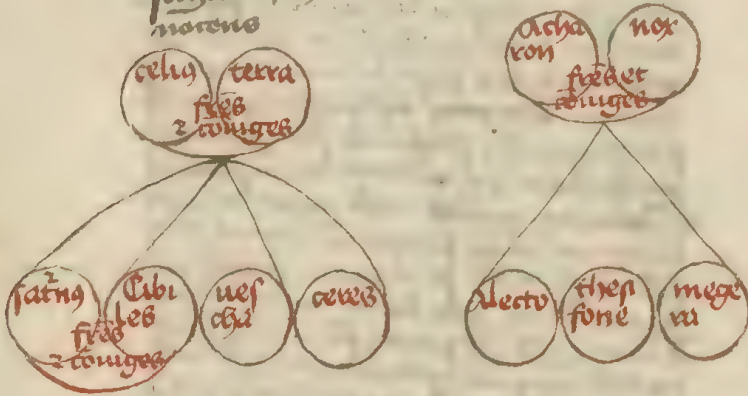 notens
celiꝰ terra
fr̄es
⁊ cōiuges
Acha
ron
nox
fr̄es et
cōiuges
satn̄ꝰ
Cibi
les
fr̄es
⁊ cōiuges
ues
cha
ceres
Alecto
thesi
fone
mege
ra